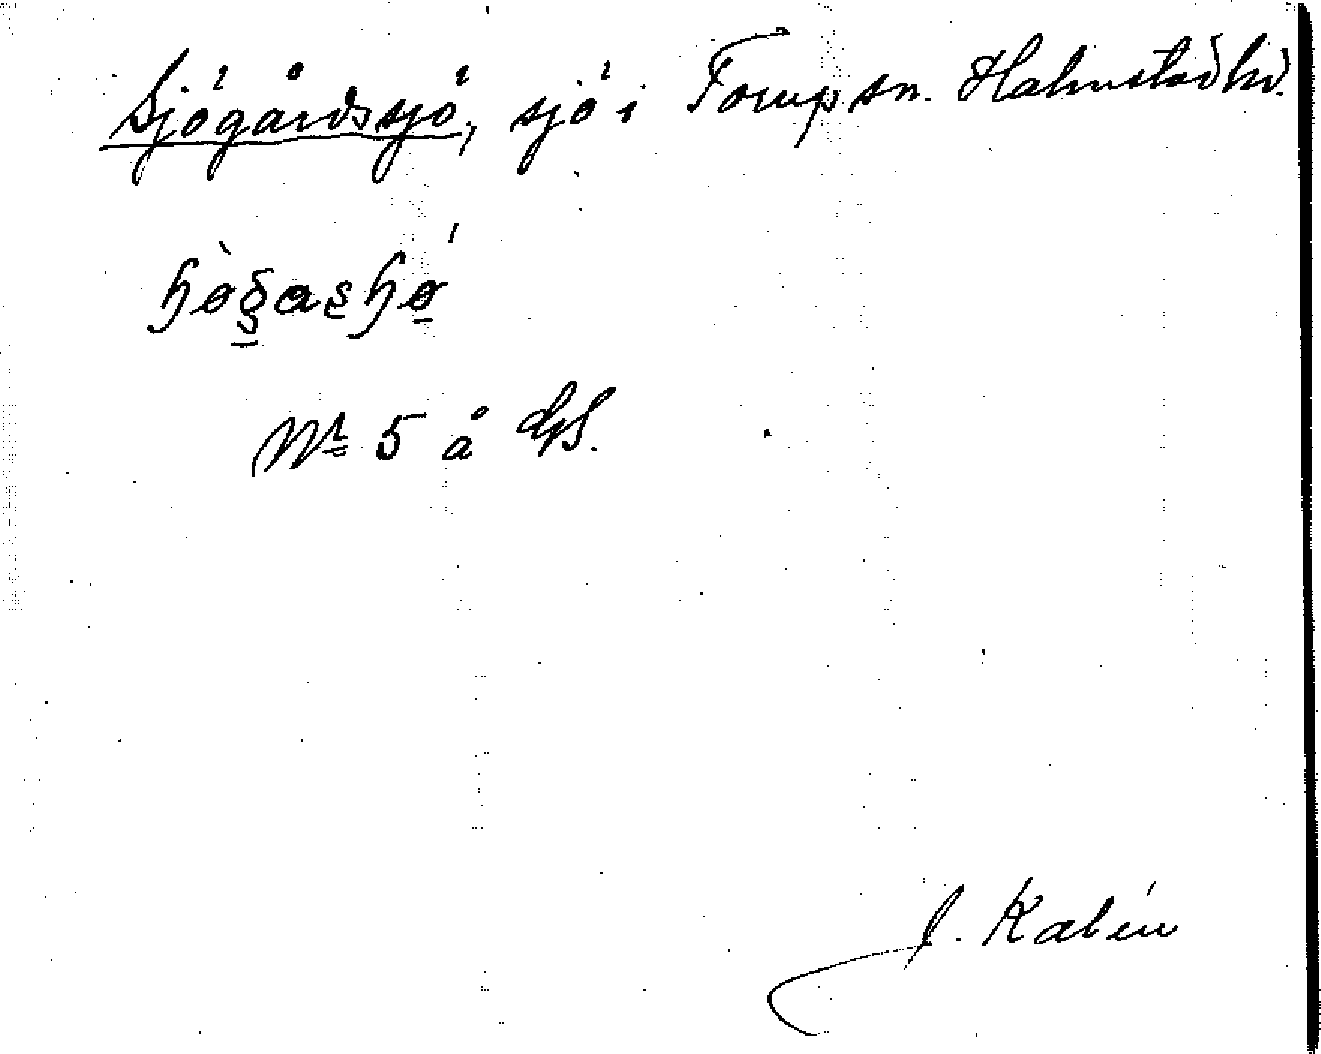 Sjögårdssjö, sjö i Torup sn. Halmstad hd.
Nr 5 å GS.
J. Kalén